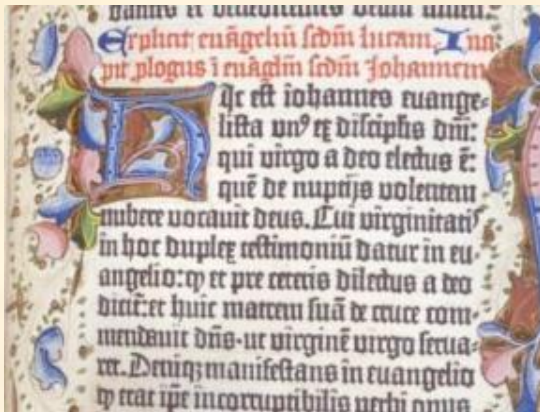 dantes et benedicentes deum amen.
Explicit euāgeliū scdm̄ lucam. Inci
pit ꝓlogus ī euāgliū scdm̄ Johannem
Hic est iohannes euange-
lista vnꝰ ex discipl̄is dn̄i:
qui virgo a deo electus ē:
quē de nuptijs volentem
nubere vocauit deus. Cui virginitatꝭ
in hoc duplex testimoniū datur in eu-
angelio: ꝙ et pre ceteris dilectus a deo
dicit̄: et huic matrem suā de cruce com-
mendauit dn̄s · ut virginē virgo serua-
ret. Deniqꝫ manifestans in euangelio
ꝙ erat ip̄e incorruptibilis verbi opus